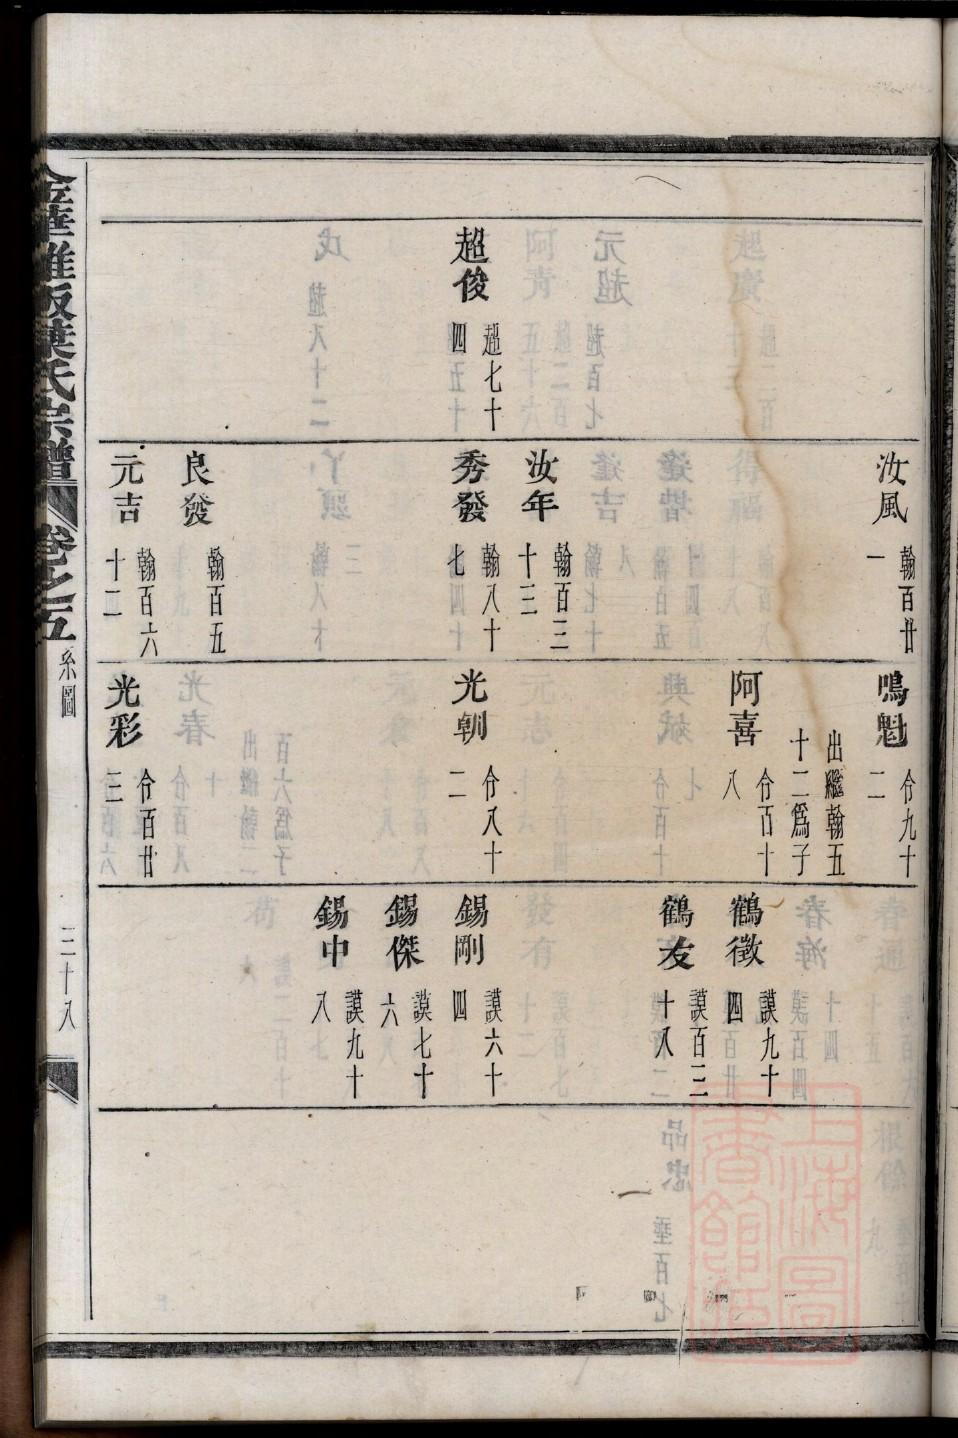 超俊 超七十四
汝風 翰百廿一
汝年 翰百三十三
秀發 翰八十七
良發 翰百五
元吉 翰百六十二
鳴魁 仒九十二
出繼翰五十二爲子
阿喜 仒百十八
光朝 仒八十二
光彩 仒百廿三
鶴徵 謨九十四
鶴友 謨百二十八
錫剛 謨六十四
錫傑 謨七十六
錫中 謨九十八
葉氏宗譜 卷之五 系圖 三十八
上海圖書館藏